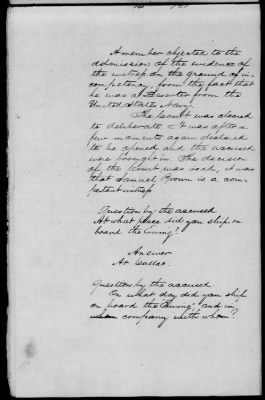 A member objected to the
admission of the evidence of
the witness on the ground of in-
competency, from the fact that
he was a Deserter from the
United States Navy.
The Court was closed
to deliberate & It was after a
few moments again declared
to be opened and the accused
were brought in. The decision
of the Court was read, it was
that Samuel Brown is a com-
petent witness
Question by the accused
At what place did you ship on
board the Ewing?
Answer
At Callao.
Question by the accused.
On what day did you ship
on board the Ewing, and in
company with whom?